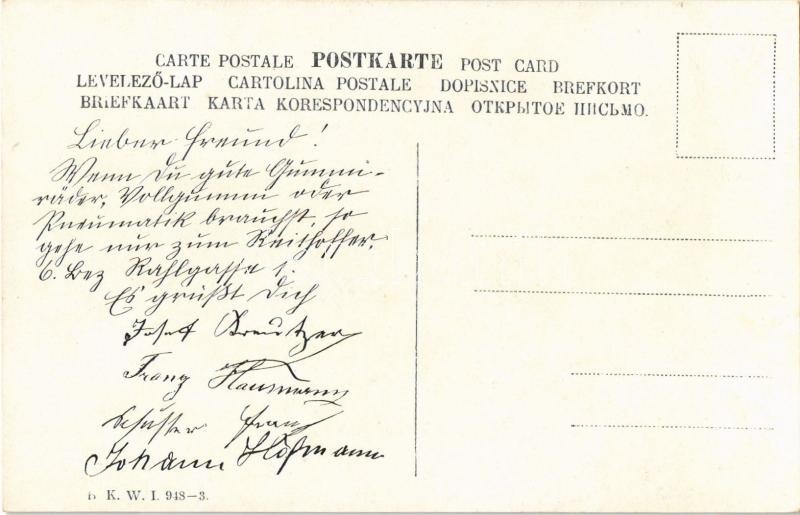 CARTE POSTALE POSTKARTE POST CARD
LEVELEZŐ-LAP CARTOLINA POSTALE DOPISNICE BREFKORT
BRIEFKAART KARTA KORESPONDENCYJNA ОТКРЫТОЕ ПИСЬМО.
Lieber Freund!
Wenn Du gute Gummi-
räder, Vollgummi oder
Pneumatik brauchst, so
gehe nur zum Reithoffer,
6. Bez Rahlgasse 1.
Es grüßt Dich
Josef Kreutzer
Franz Hausmann
Schuster Franz
Johann Hofmann
B. K. W. I. 948-3.